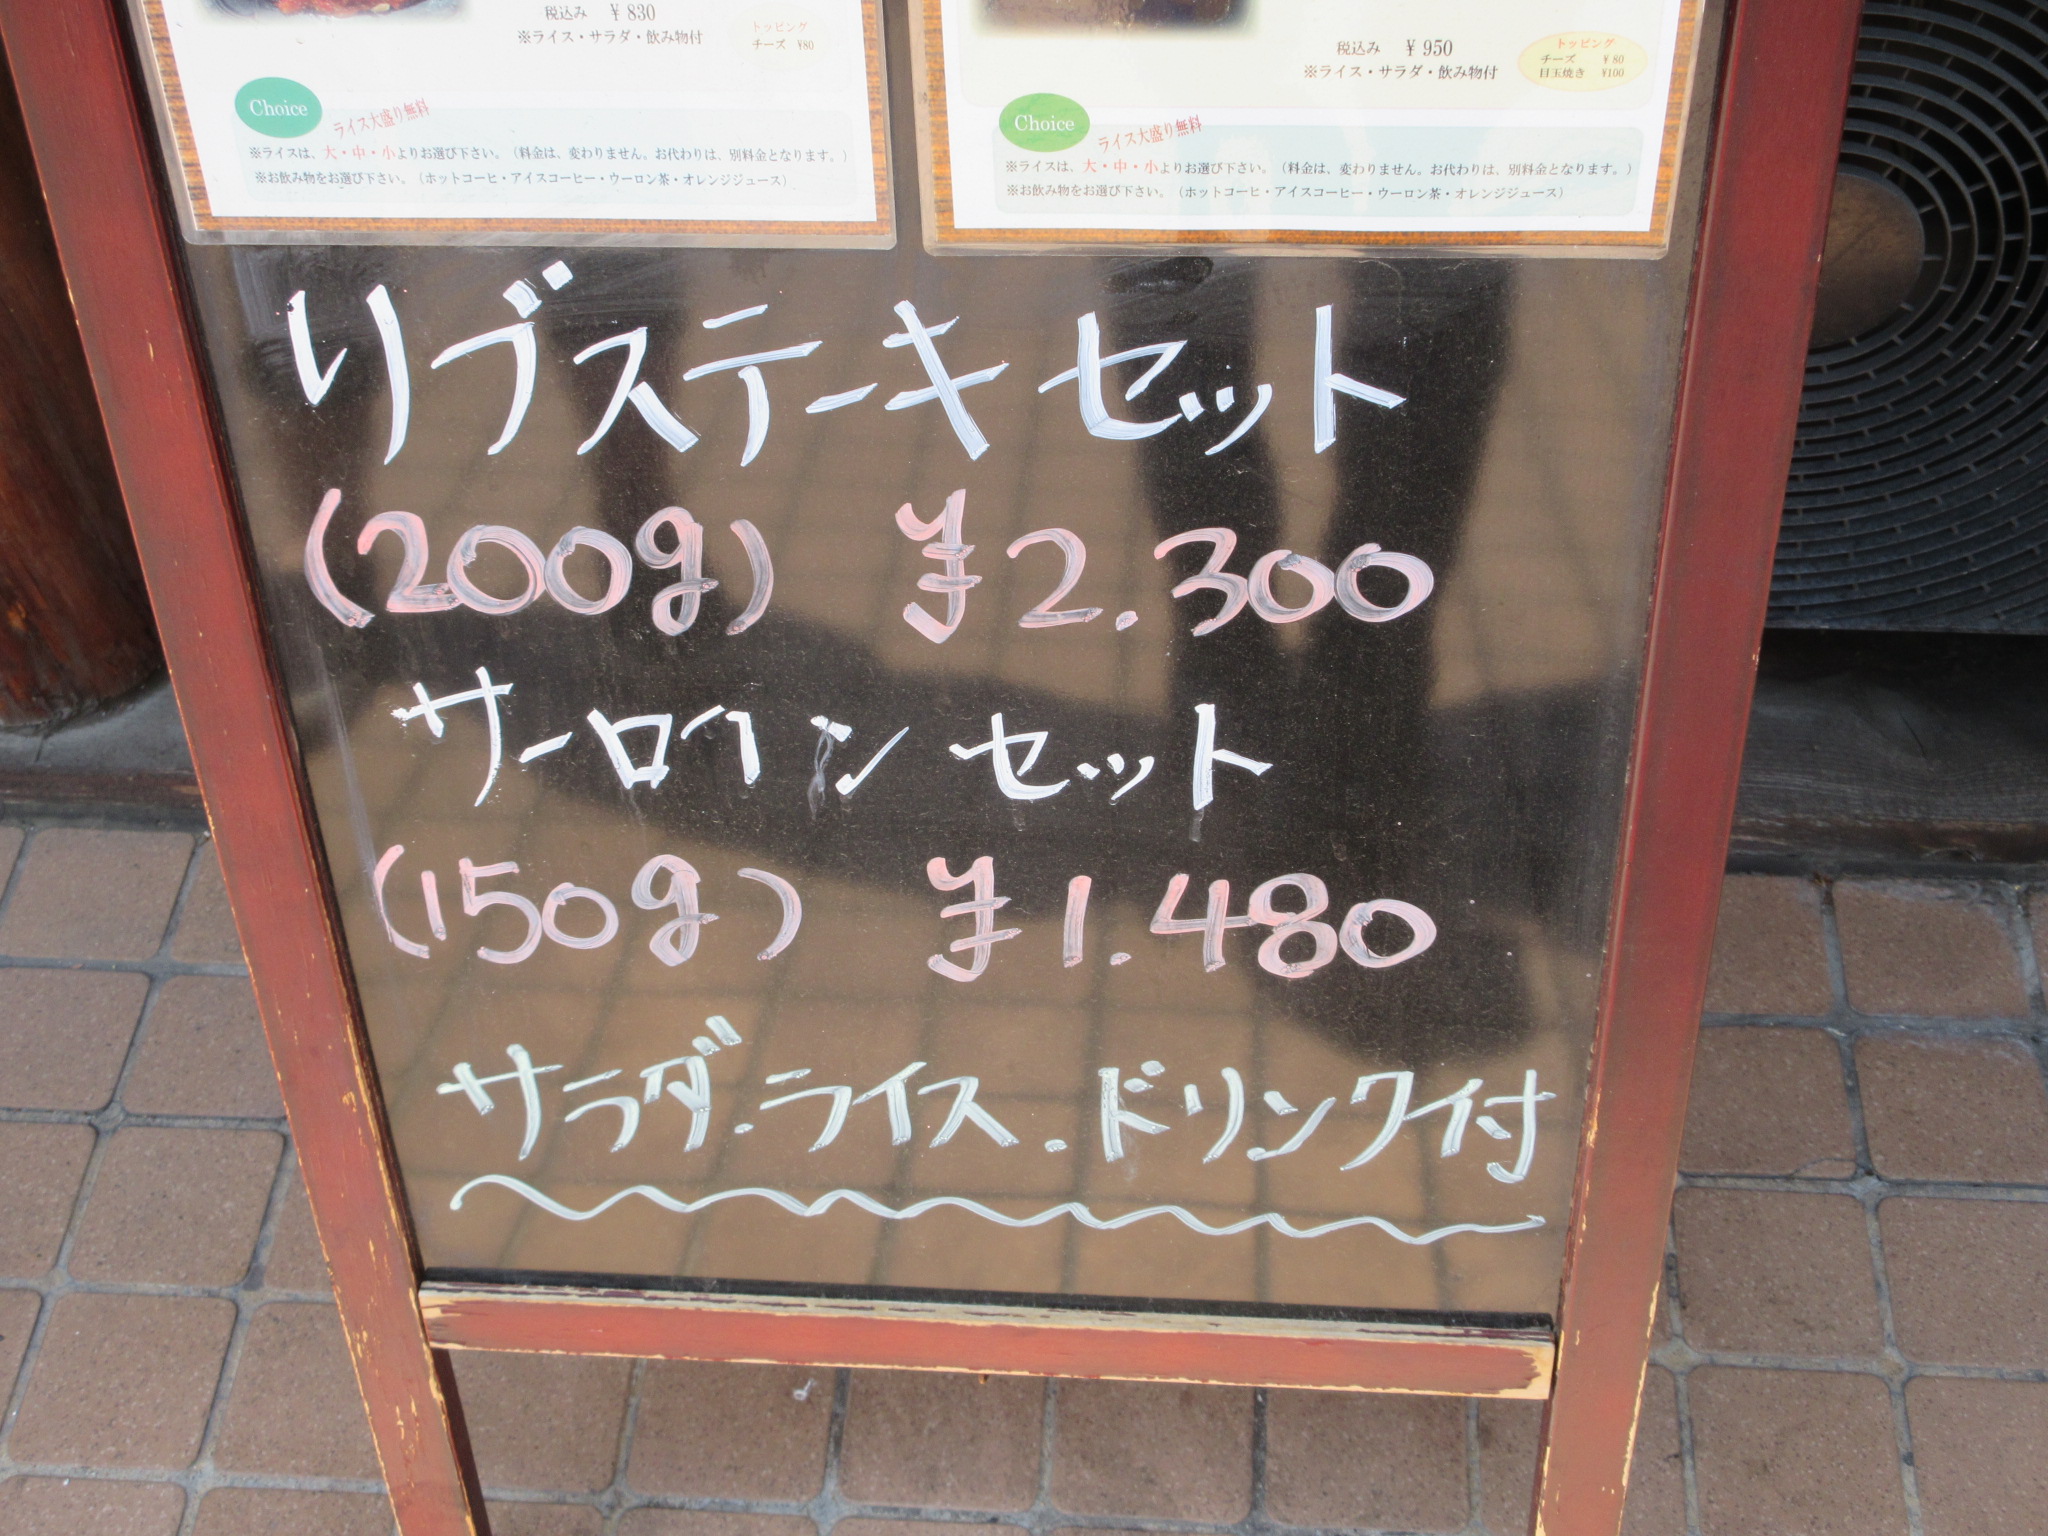 税込み ¥830
※ライス・サラダ・飲み物付
トッピング
チーズ ¥80
Choice
ライス大盛り無料
※ライスは、大・中・小よりお選び下さい。（料金は、変わりません。お代わりは、別料金となります。）
※お飲み物をお選び下さい。（ホットコーヒ・アイスコーヒー・ウーロン茶・オレンジジュース）
税込み ¥950
※ライス・サラダ・飲み物付
トッピング
チーズ ¥80
目玉焼き ¥100
Choice
ライス大盛り無料
※ライスは、大・中・小よりお選び下さい。（料金は、変わりません。お代わりは、別料金となります。）
※お飲み物をお選び下さい。（ホットコーヒ・アイスコーヒー・ウーロン茶・オレンジジュース）
リブステーキセット
(200g) ¥2.300
サーロインセット
(150g) ¥1.480
サラダ・ライス・ドリンク付